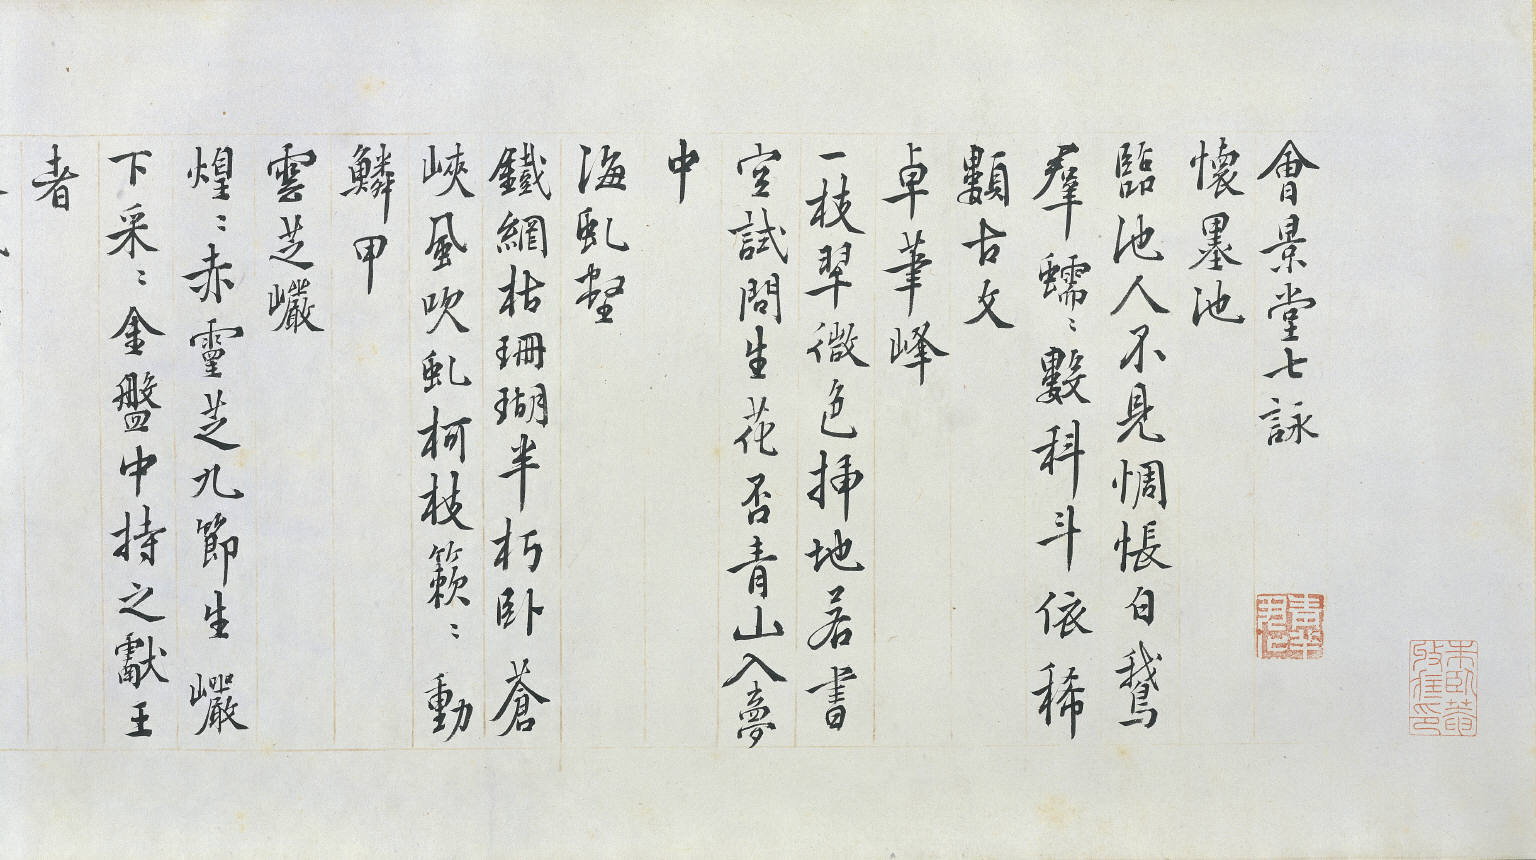 會景堂七詠
懷墨池
臨池人不見惆悵白鵝
羣蠕〻數科斗依稀
顆古文
卓筆峰
一枝翠微色插地若書
空試問生花否青山入夢
中
海虬壑
鐵網枯珊瑚半朽卧蒼
峽風吹虬柯枝籟〻動
鱗甲
雲芝巖
煌〻赤靈芝九節生巖
下采〻金盤中持之獻王
者